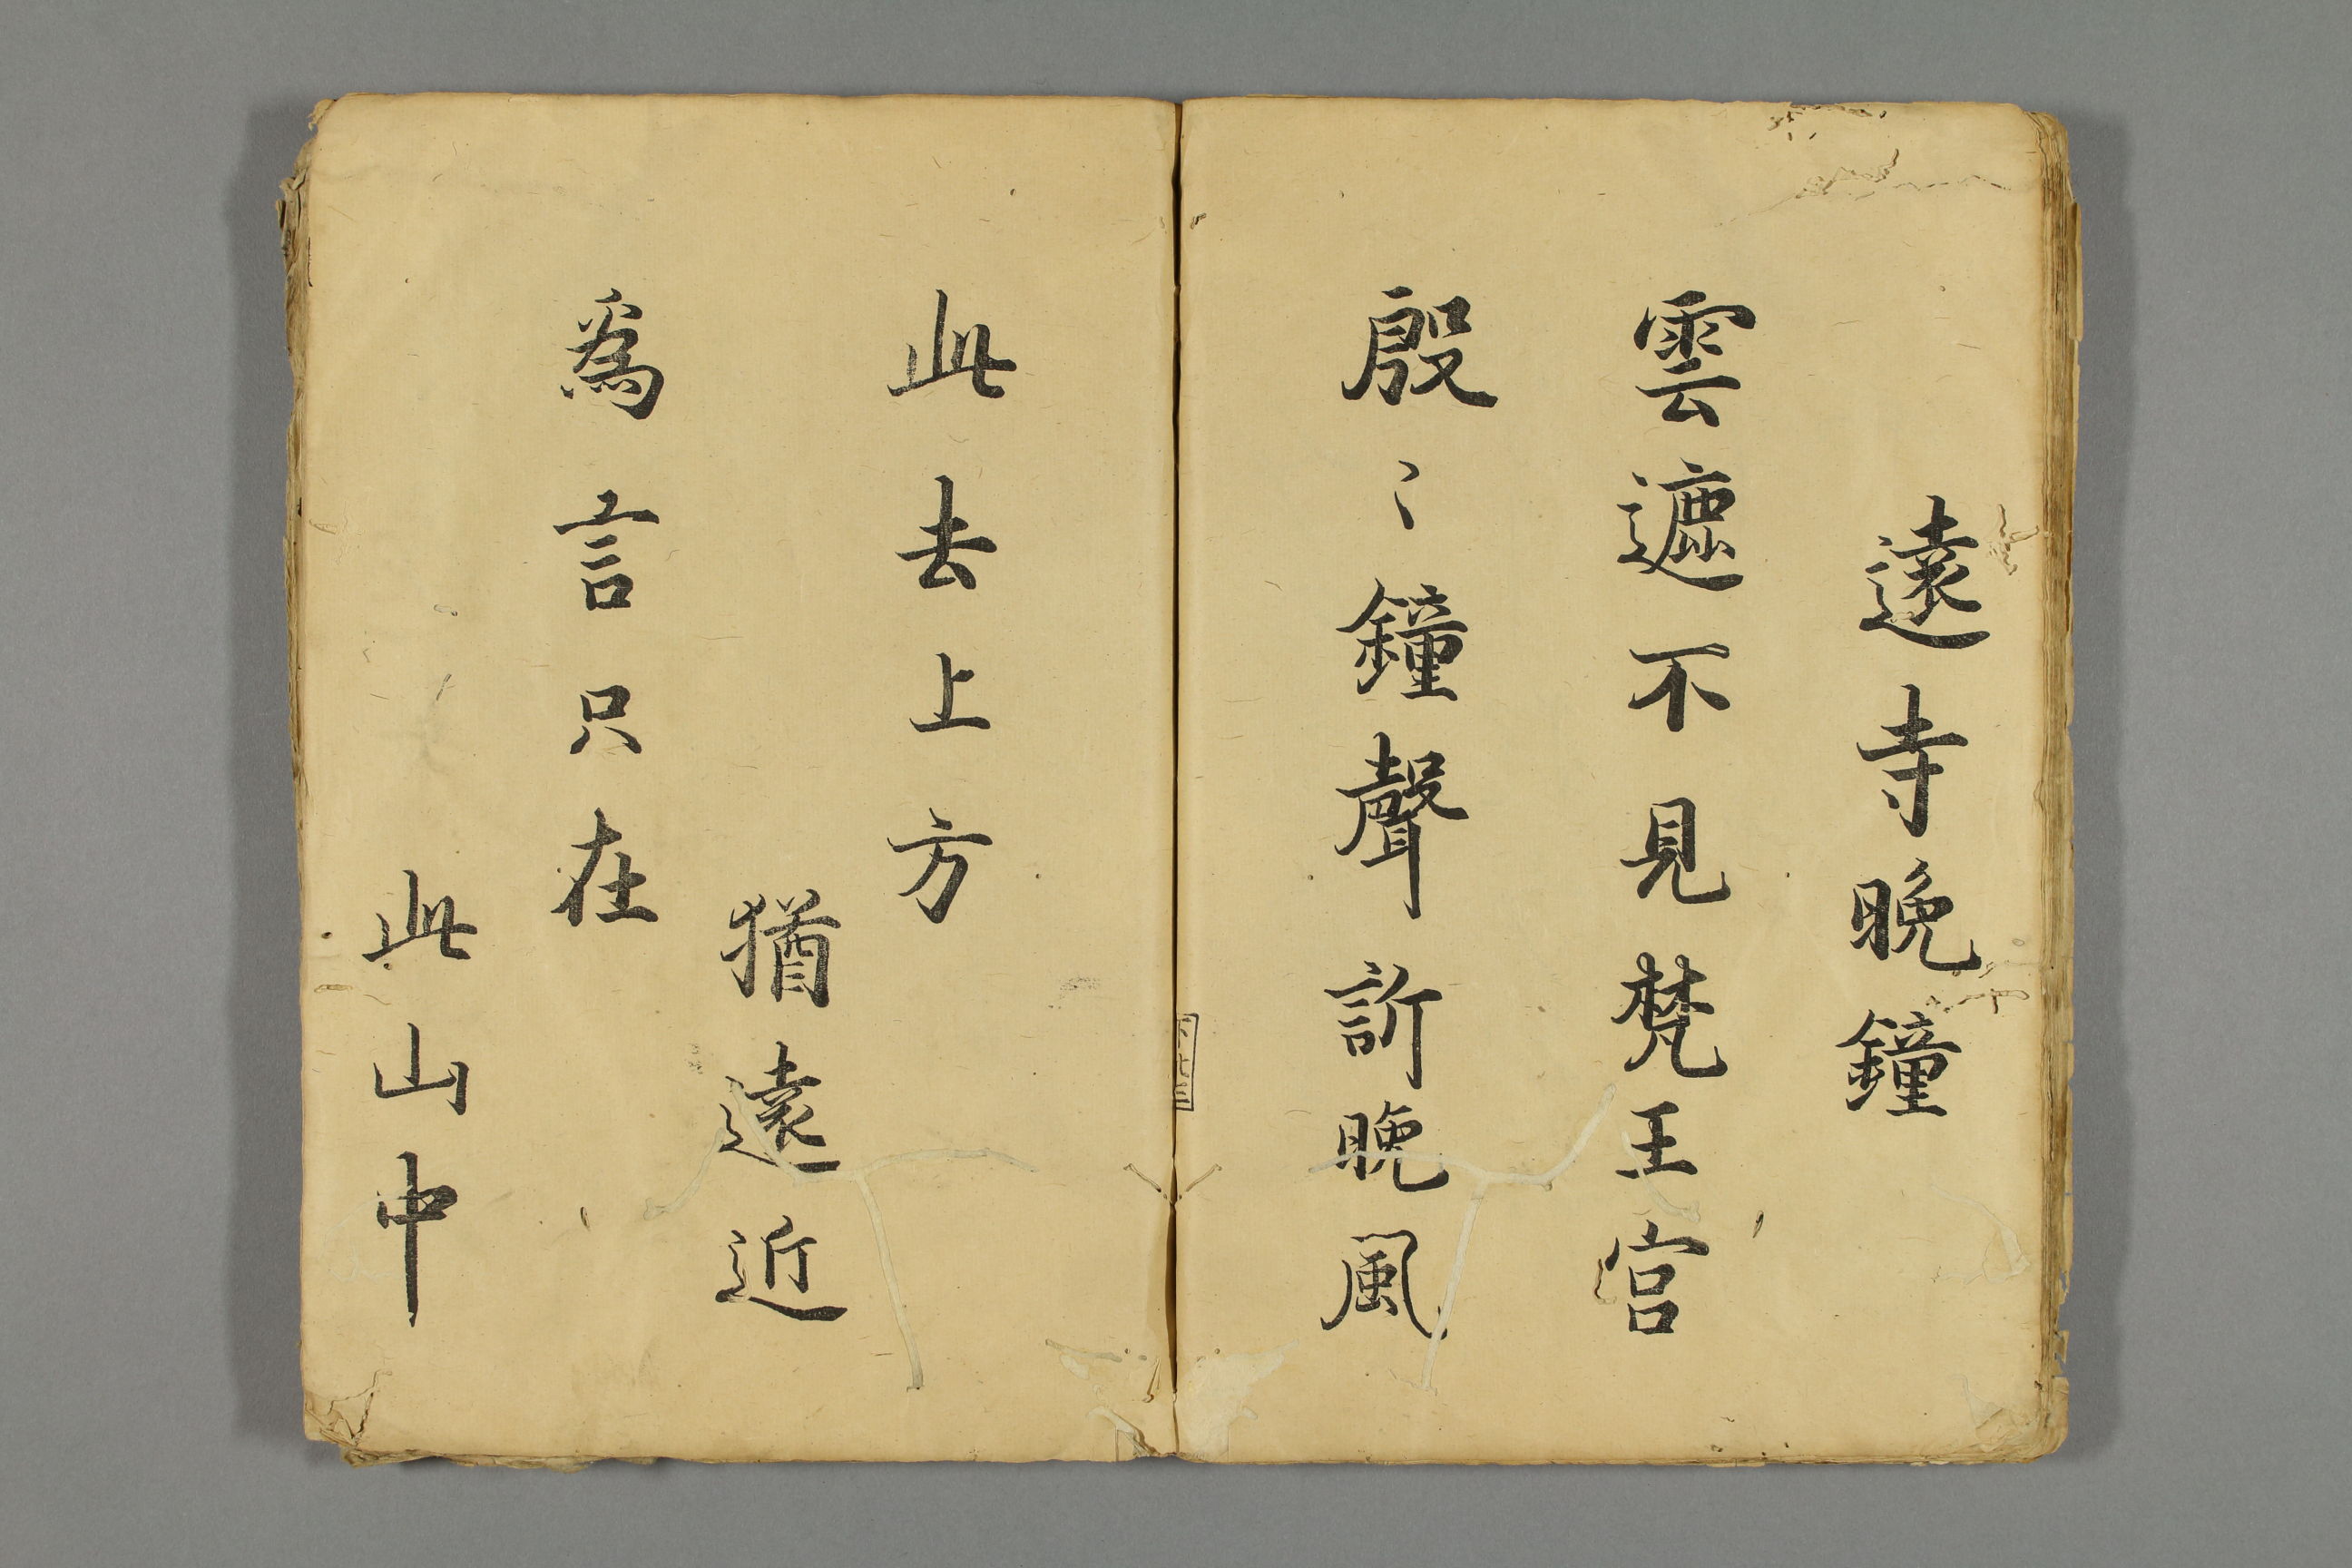 遠寺晩鐘
雲遮不見梵王宮
殷〻鐘聲訢晩風
此去上方
猶遠近
爲言只在
此山中